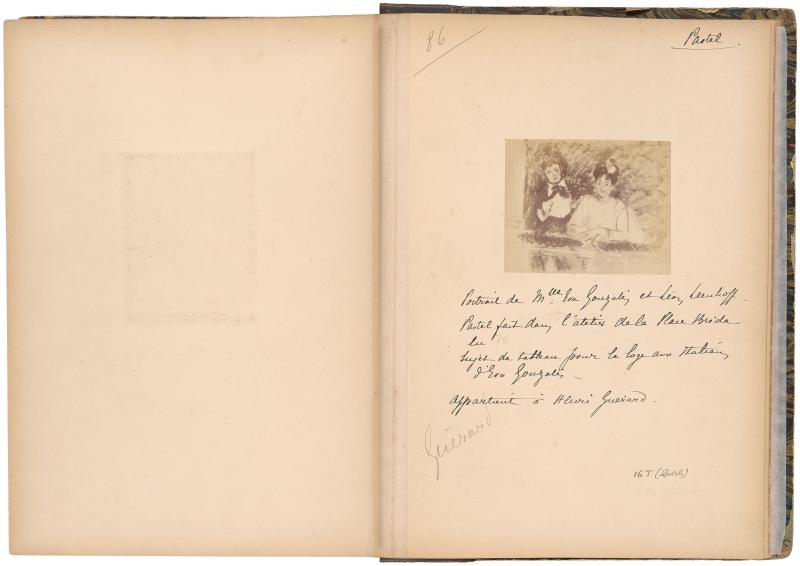 86
Pastel
Portrait de Mlle Eva Gonzalès et Léon Leenhoff
Pastel fait dans l'atelier de la Place Bréda
en 78
Sujet de tableau pour la loge aux Italiens
d'Eva Gonzalès
appartient à Henri Guérard
Guérard
16 T (Pastel)